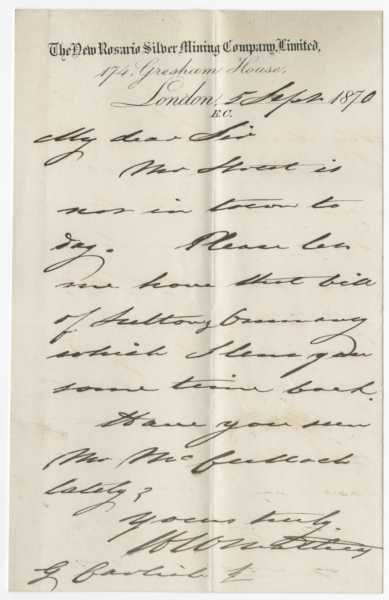 The New Rosario Silver Mining Company, Limited,
174, Gresham House,
London, 5 Sept 1870
E.C.
My dear Sir
Mr is
not in town to
day. Please let
me have that bill
of Sutton,
which I lent you
some time back.
Have you seen
Mr McCulloch
lately?
Yours truly
G